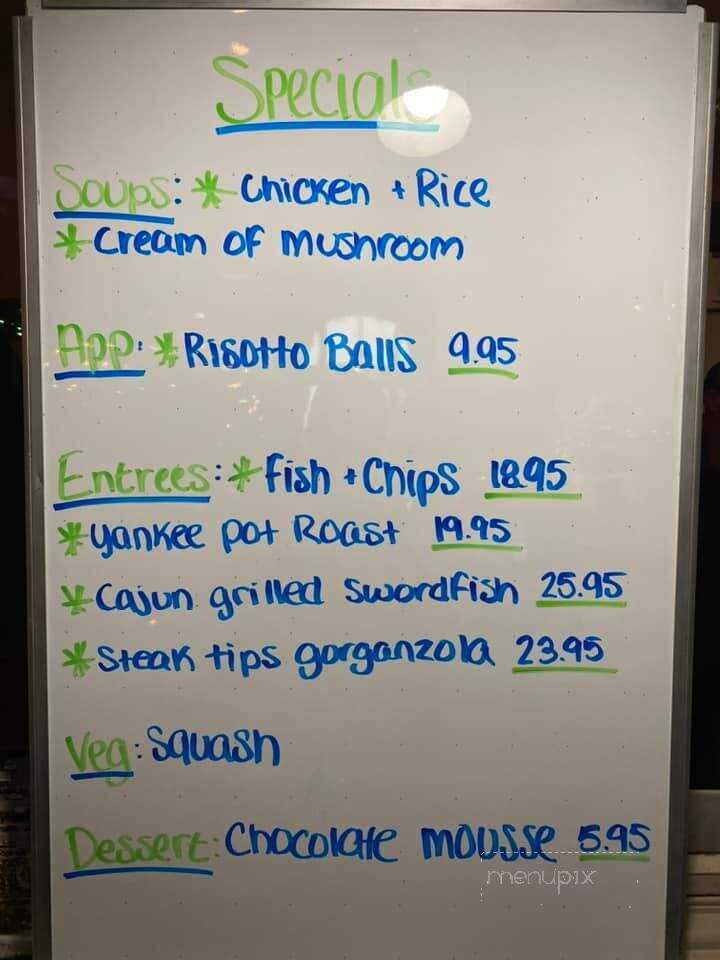 Specials
Soups: * Chicken + Rice
* Cream of mushroom
App: * Risotto Balls 9.95
Entrees: * Fish + Chips 18.95
* Yankee pot Roast 19.95
* Cajun grilled swordfish 25.95
* Steak tips gorganzola 23.95
Veg: Squash
Dessert: Chocolate mousse 5.95
menupix